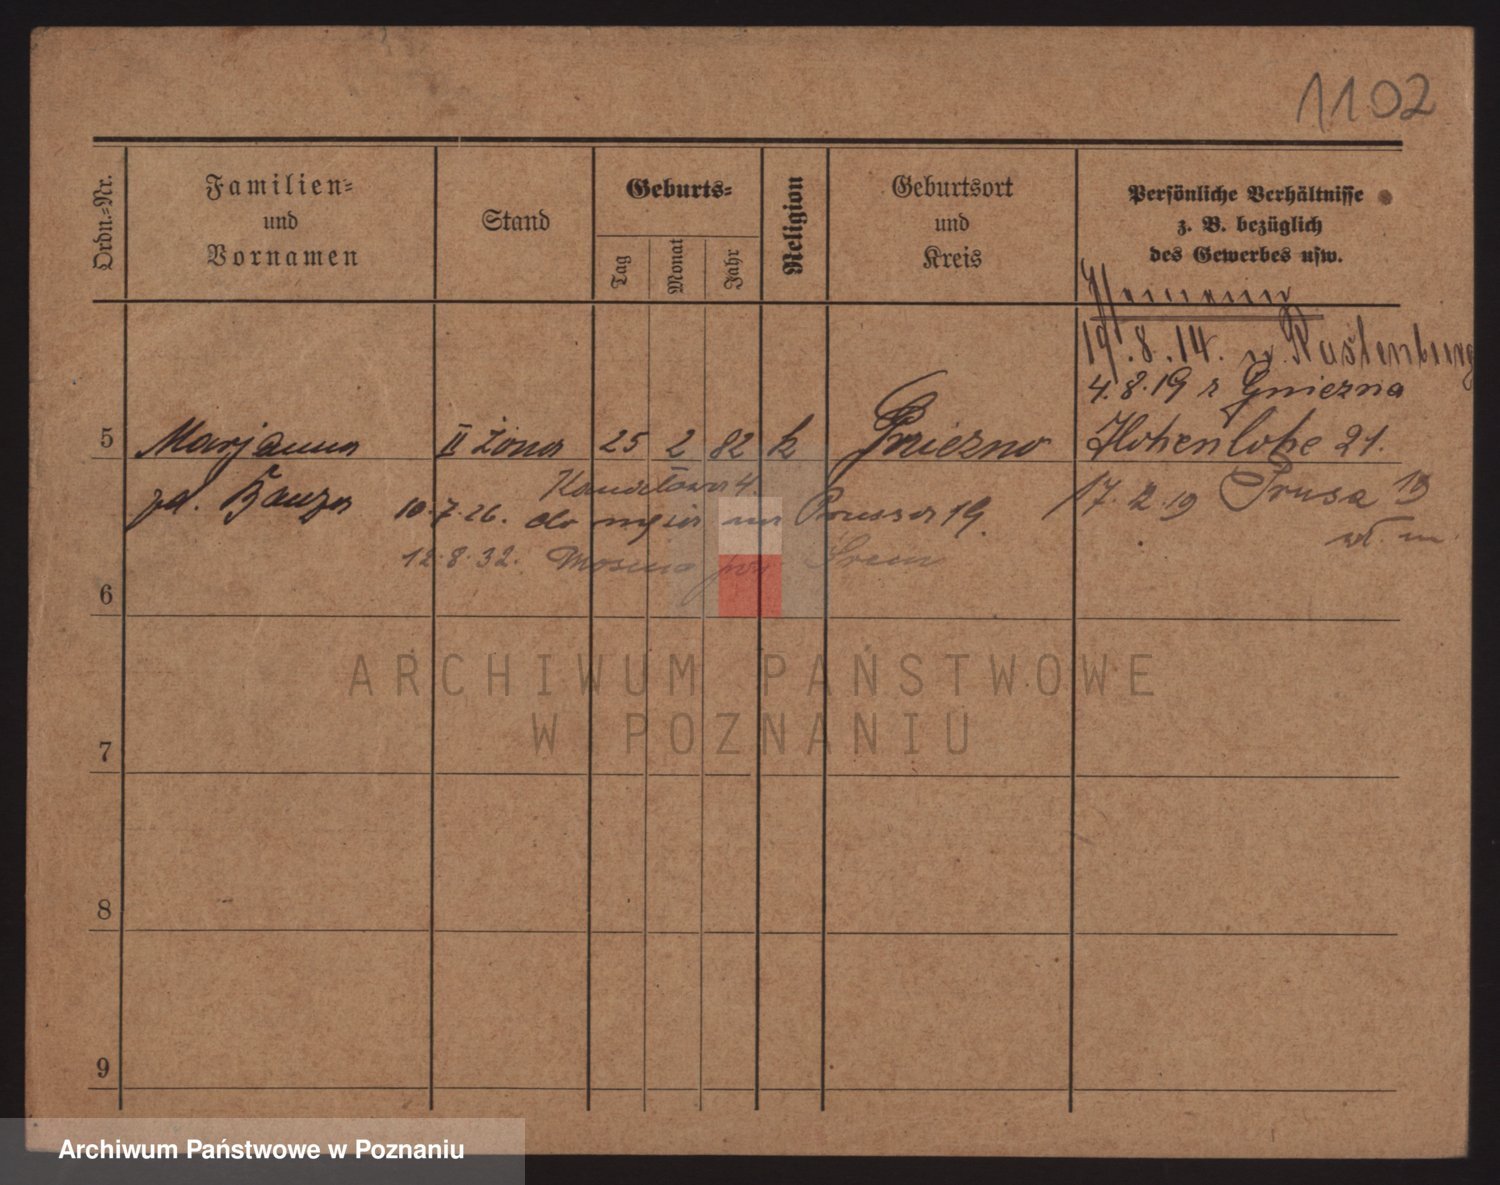 1102
Ordn.-Nr.
Familien-
und
Vornamen
Stand
Geburts-
Tag
Monat
Jahr
Religion
Geburtsort
und
Kreis
Persönliche Verhältnisse
z. B. bezüglich
des Gewerbes usw.
19.8.14. n. Rastenburg
4.8.19 z Gniezna
5 Marjanna II żona 25 2 82 k Gniezno Hohenlohe 21.
17.2.19 Prusa 19
10.7.26. do męża na Prusa 19.
12.8.32. Mosina pow Śrem
6
7
8
9
ARCHIWUM PAŃSTWOWE
W POZNANIU
Archiwum Państwowe w Poznaniu